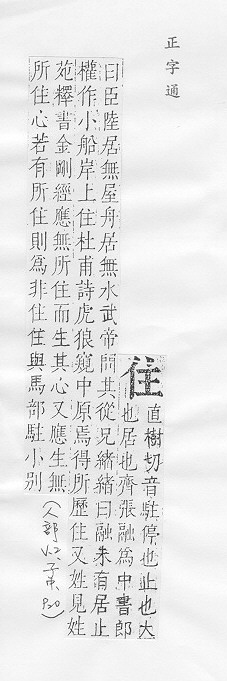 正字通
住
直樹切音駐停也止也大
也居也齊張融爲中書郎
曰臣陸居無屋舟居無水武帝問其從兄緒緒曰融未有居止
權作小船岸上住杜甫詩虎狼窺中原焉得所歷住又姓見姓
苑釋書金剛經應無所住而生其心又應生無
所住心若有所住則爲非住住與馬部駐小别
(人部 子 P20)